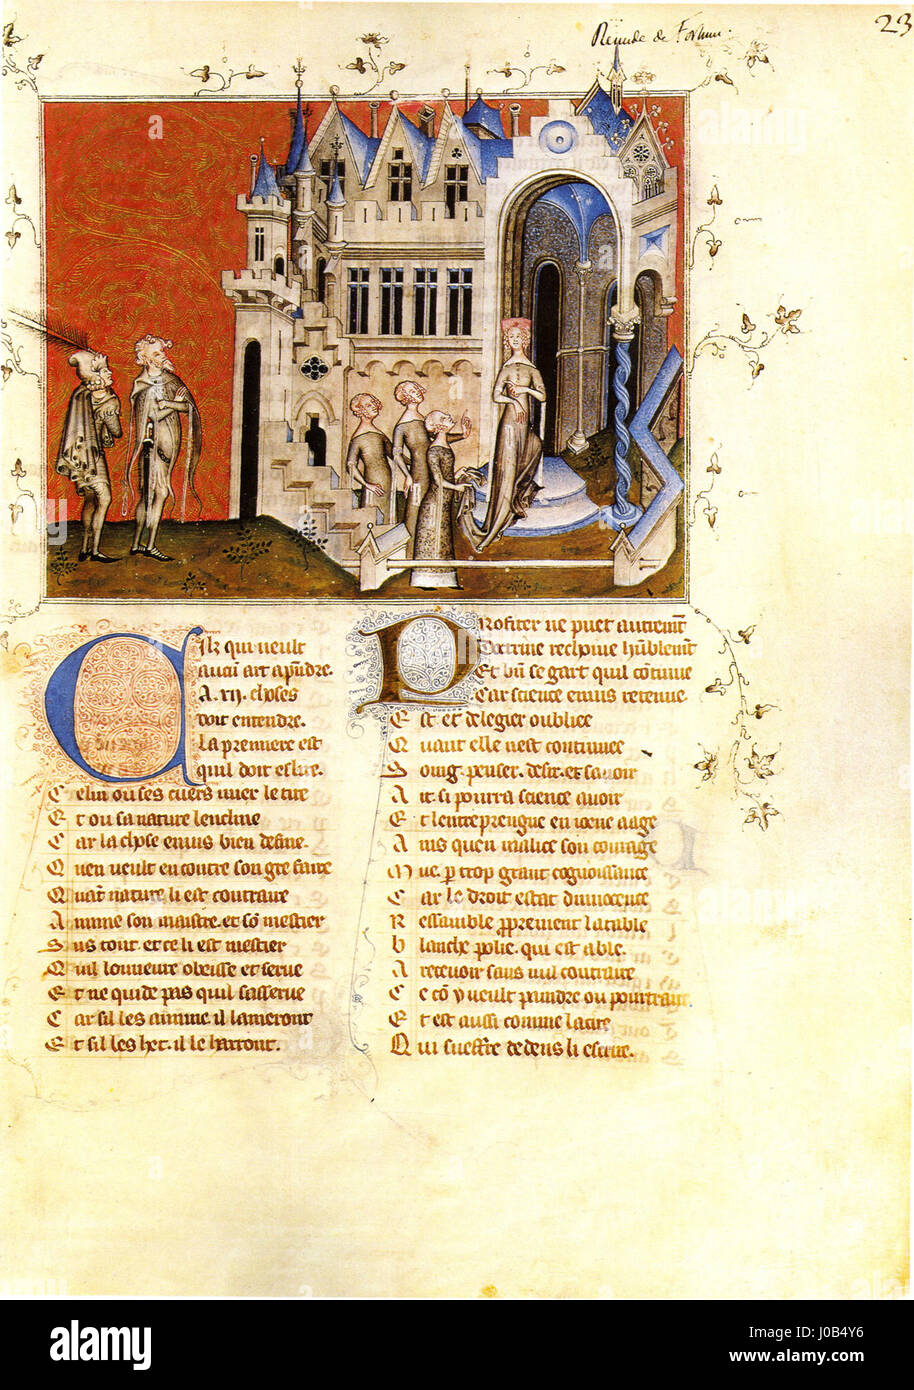 Remede de Fortune.
23
Cilz qui veult
aucun art aprendre.
A .xij. choses
doit entendre.
La premiere est
quil doit eslire.
Celui ou ses cuers miex le tire
Et ou sa nature lencline
Car la chose enuis bien define.
Quen veult encontre son gre faire
Quant nature li est contraire
Aimme son maistre. et son mestier
Sus tout. et ce li est mestier
Quil lonneure obeisse et serue
Et ne quide pas quil sasserue
Car sil les aimme. il lameront
Et sil les het. il le harront.
Profiter ne puet autrement
Doctrine recepuie humblement
Et bien se gart quil continue
Car science enuis retenue
Est et de legier oubliee
Quant elle nest continuee
Soing. penser. desir. et sauoir
Ait. si pourra science auoir
Et lentreprengne en ioene aage
Ains quen malice son courage
Mue. par trop grant cognoissance
Car le droit estat dinnocence
Ressamble proprement la table
Blanche polie. qui est able.
A receuoir sans nul contraire
Ce com y veult paindre ou pourtraire
Et est aussi comme la cire
Qui sueffre dedens li escrire.
alamy
Image ID: J0B4Y6
www.alamy.com